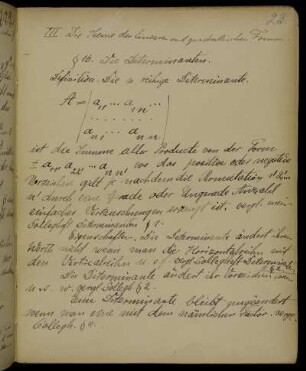 23
III Die Theorie der linearen und quadratischen Formen
§ 16. Die Determinanten.
Definition. Die n reihige Determinante.
A = a₁₁ ... a₁ₙ
. . . . . . .
aₙ₁ ... aₙₙ
ist die Summe aller Produkte von der Form
± a₁₁' a₂₂' ... aₙₙ' wo das positive oder negative
Vorzeichen gilt je nachdem die Permutation
durch eine grade oder ungrade Anzahl
einfacher Vertauschungen erzeugt ist. vergl. mein
Collegheft Determinanten § 1.
Eigenschaften. Die Determinante ändert ihren
Werth nicht wenn man die Horizontalreihen mit
den Verticalreihen
Die Determinante ändert ihr Vorzeichen, wenn
u. s. w. vergl. Collegh § 2.
Eine Determinante bleibt ungeändert
wenn man eine mit dem nämlichen Factor
Collegh. § 4.